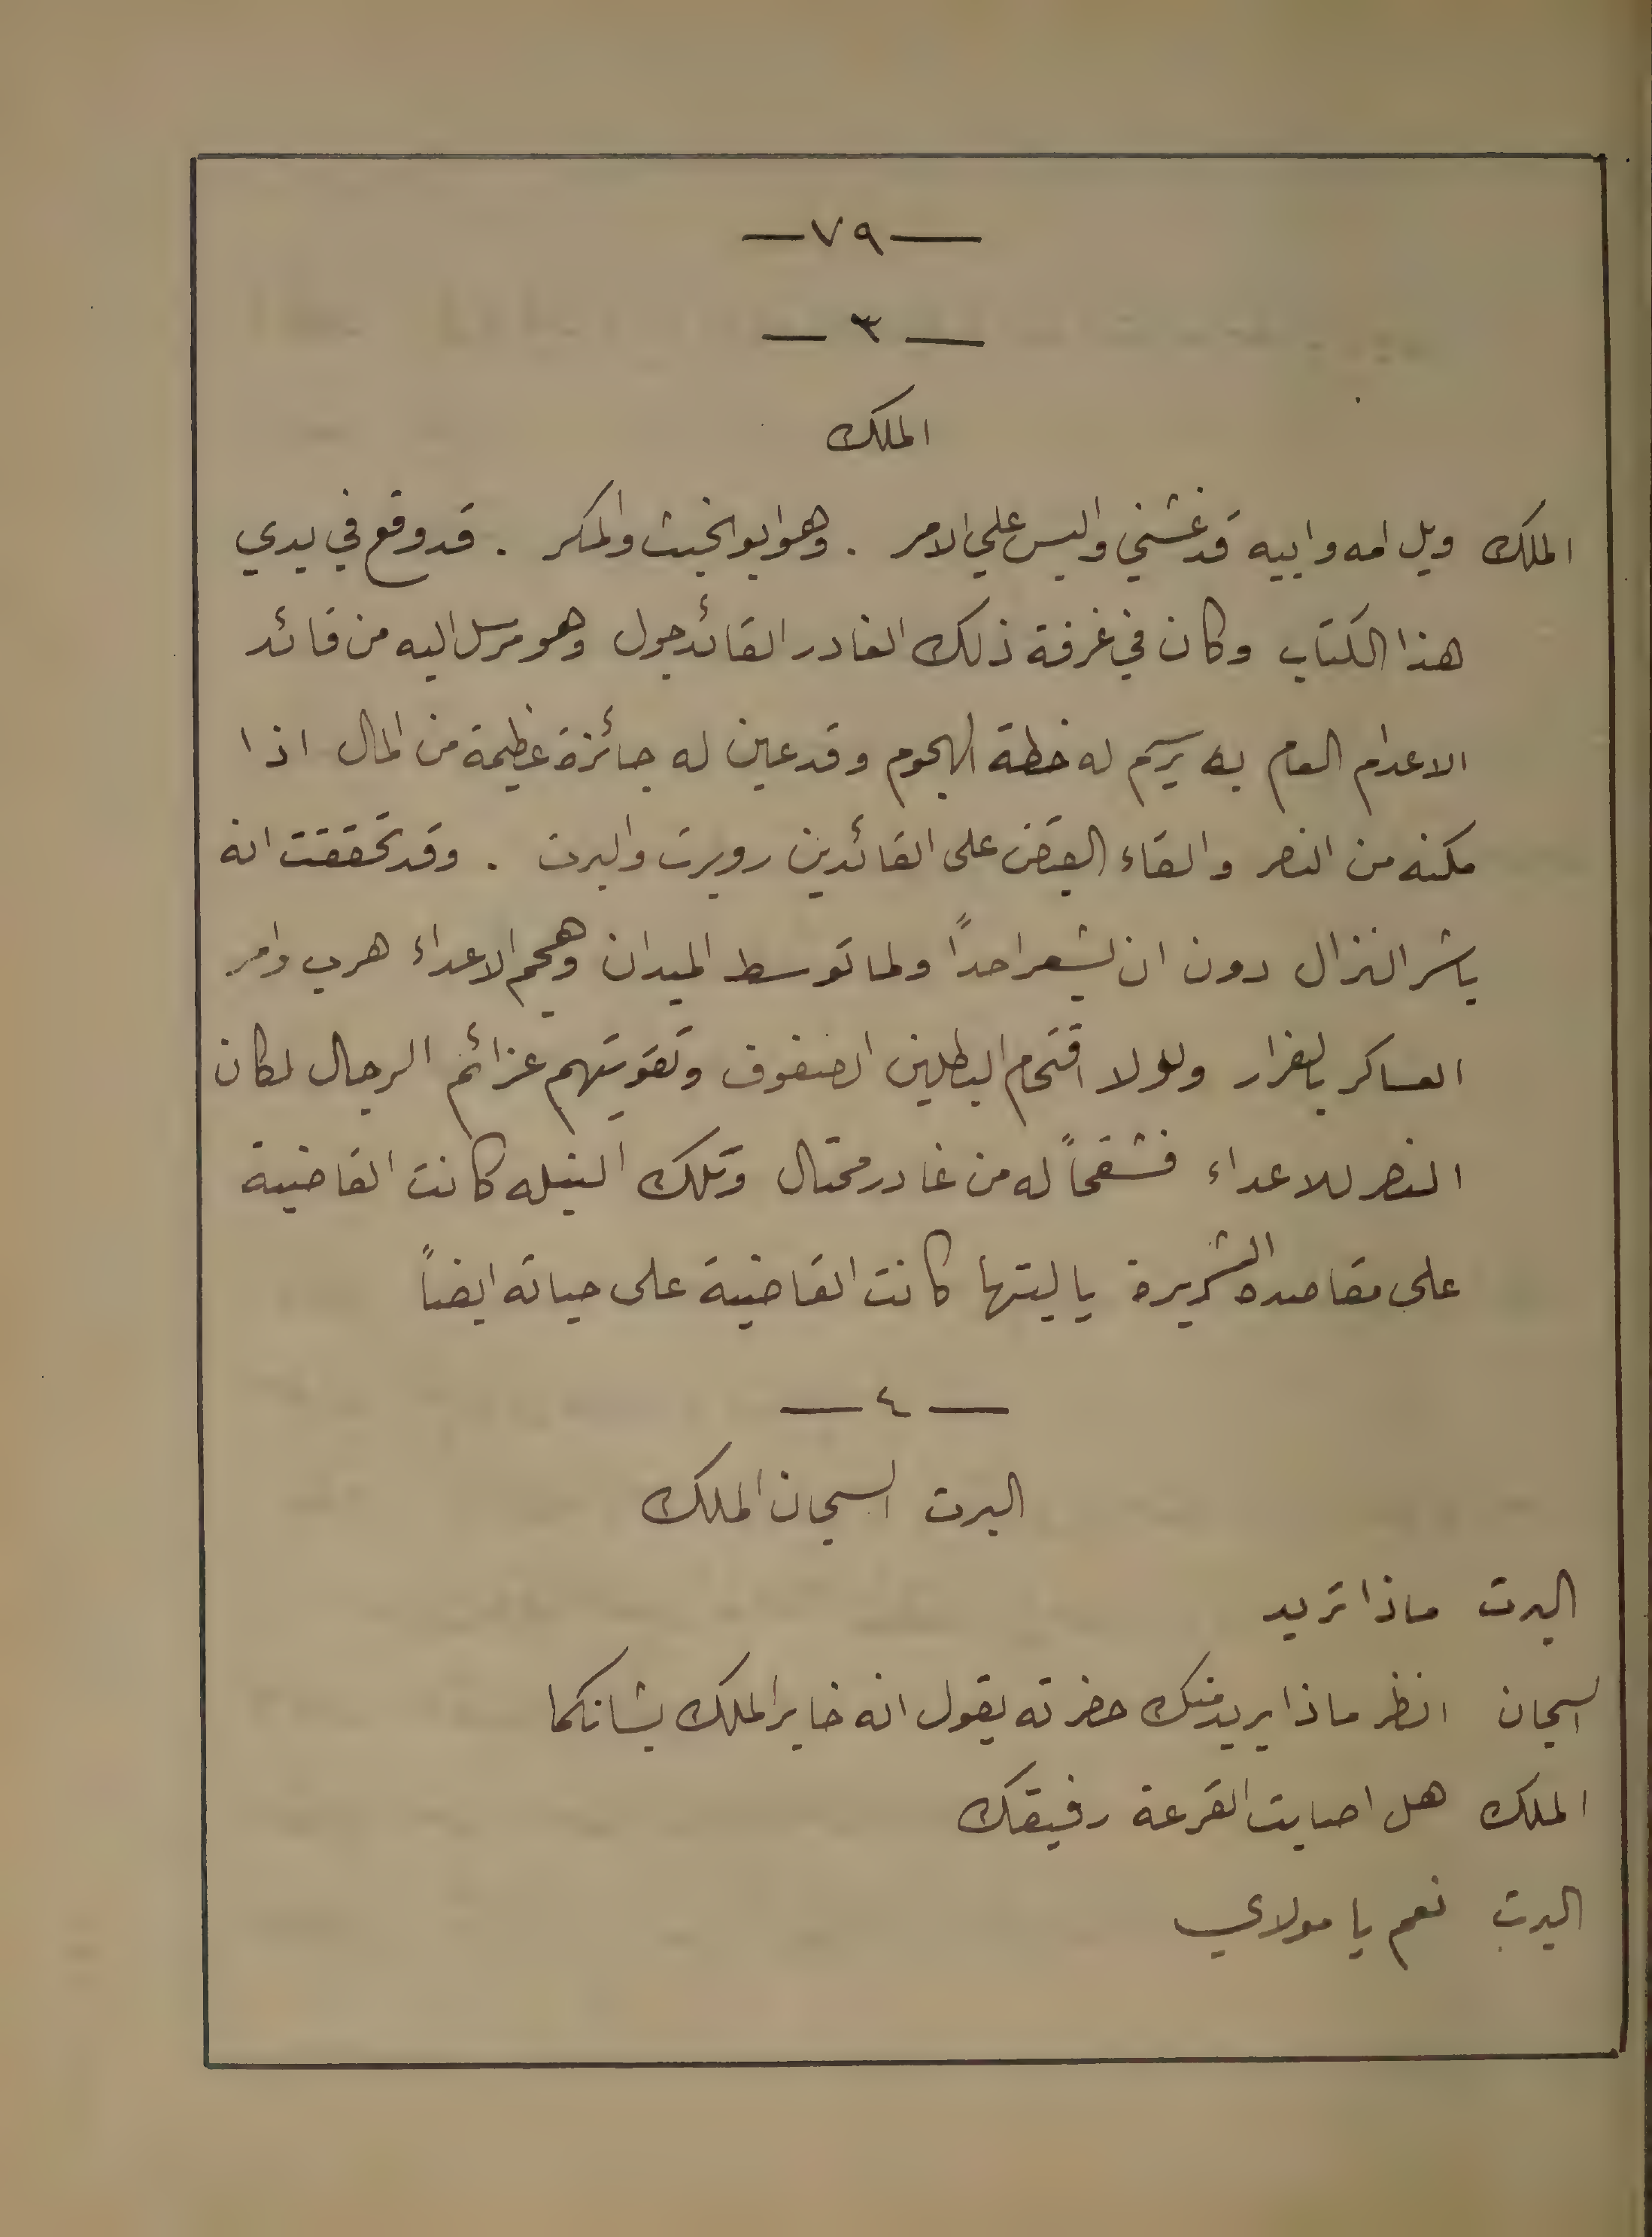 —٧٩—
— ٣ —
الملك
الملك ويل امه وابيه قد غشني والبس علي الامر . وهو ابو الخبث والمكر . قد وقع في يدي
هذا الكتاب وكان في غرفة ذلك الغادر القائد جول وهو مرسل اليه من قائد
الاعدام العام به يرسم له خطة الهجوم وقد عين له جائزة عظيمة من المال اذا
مكنه من النصر والقاء القبض على القائدين روبرت والبرت . وقد تحققت انه
باشر النزال دون ان يشعر احداً ولما توسط الميدان وهجم الاعداء هرب وامر
العساكر بالفرار ولولا اقتحام البطلين الصفوف وتقويتهم عزائم الرجال لكان
النصر للاعداء فشقحاً له من غادر محتال وتلك النبله كانت القاضية
على مقاصده الشريرة يا ليتها كانت القاضية على حياته ايضاً
— ٤ —
البرت السجان الملك
البرت ماذا تريد
السجان انظر ماذا يريد منك حضرته يقول انه خابر الملك بشانكما
الملك هل اصابت القرعة رفيقك
البرت نعم يا مولاي